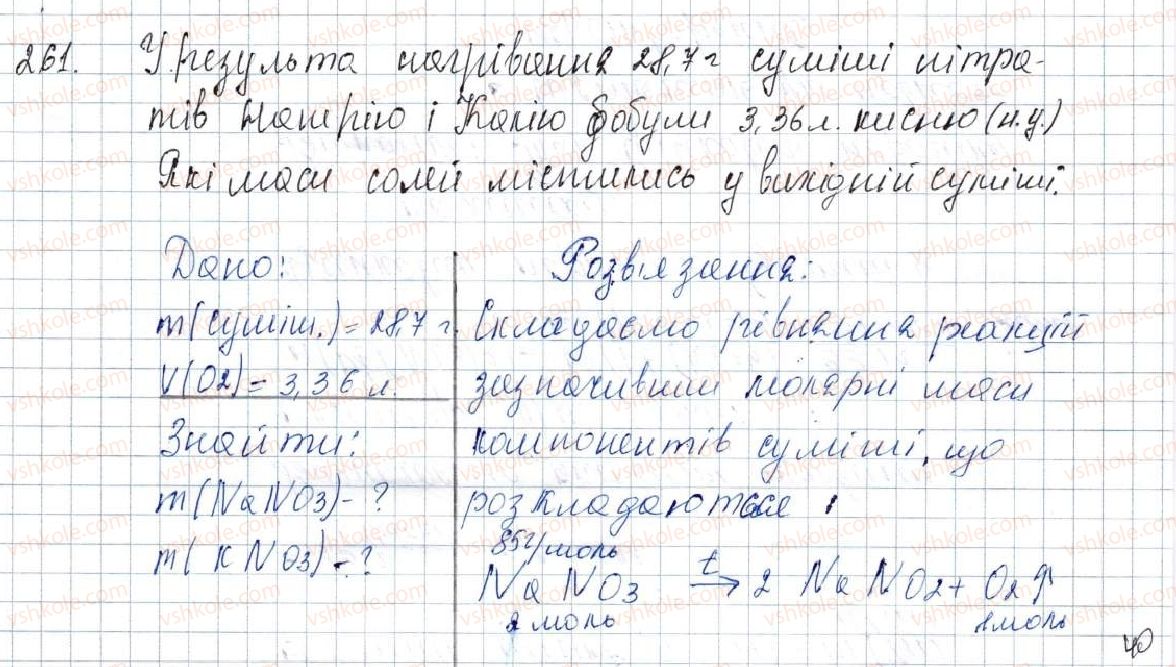 261. У результа нагрівання 28,7 г суміші нітра-
тів Натрію і Калію добули 3,36 л. кисню (н.у.)
Які маси солей містились у вихідній суміші.
Дано:
m(суміш.) = 28,7 г.
V(O2) = 3,36 л.
Знайти:
m(NaNO3) - ?
m(KNO3) - ?
Розв'язання:
Складаємо рівняння реакцій
зазначивши молярні маси
компонентів суміші, що
розкладаються :
85г/моль
NaNO3 t→ 2 NaNO2 + O2↑
2 моль 1моль
40